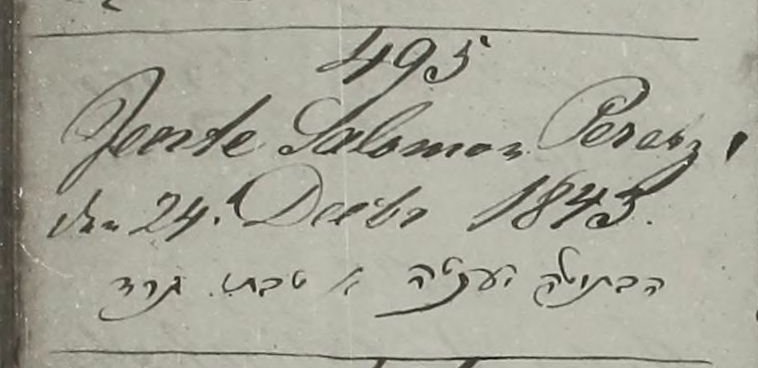 495
Jente Salomon Perez,
den 24. Decbr 1843.
הבתולה יענטה א טבת תרד